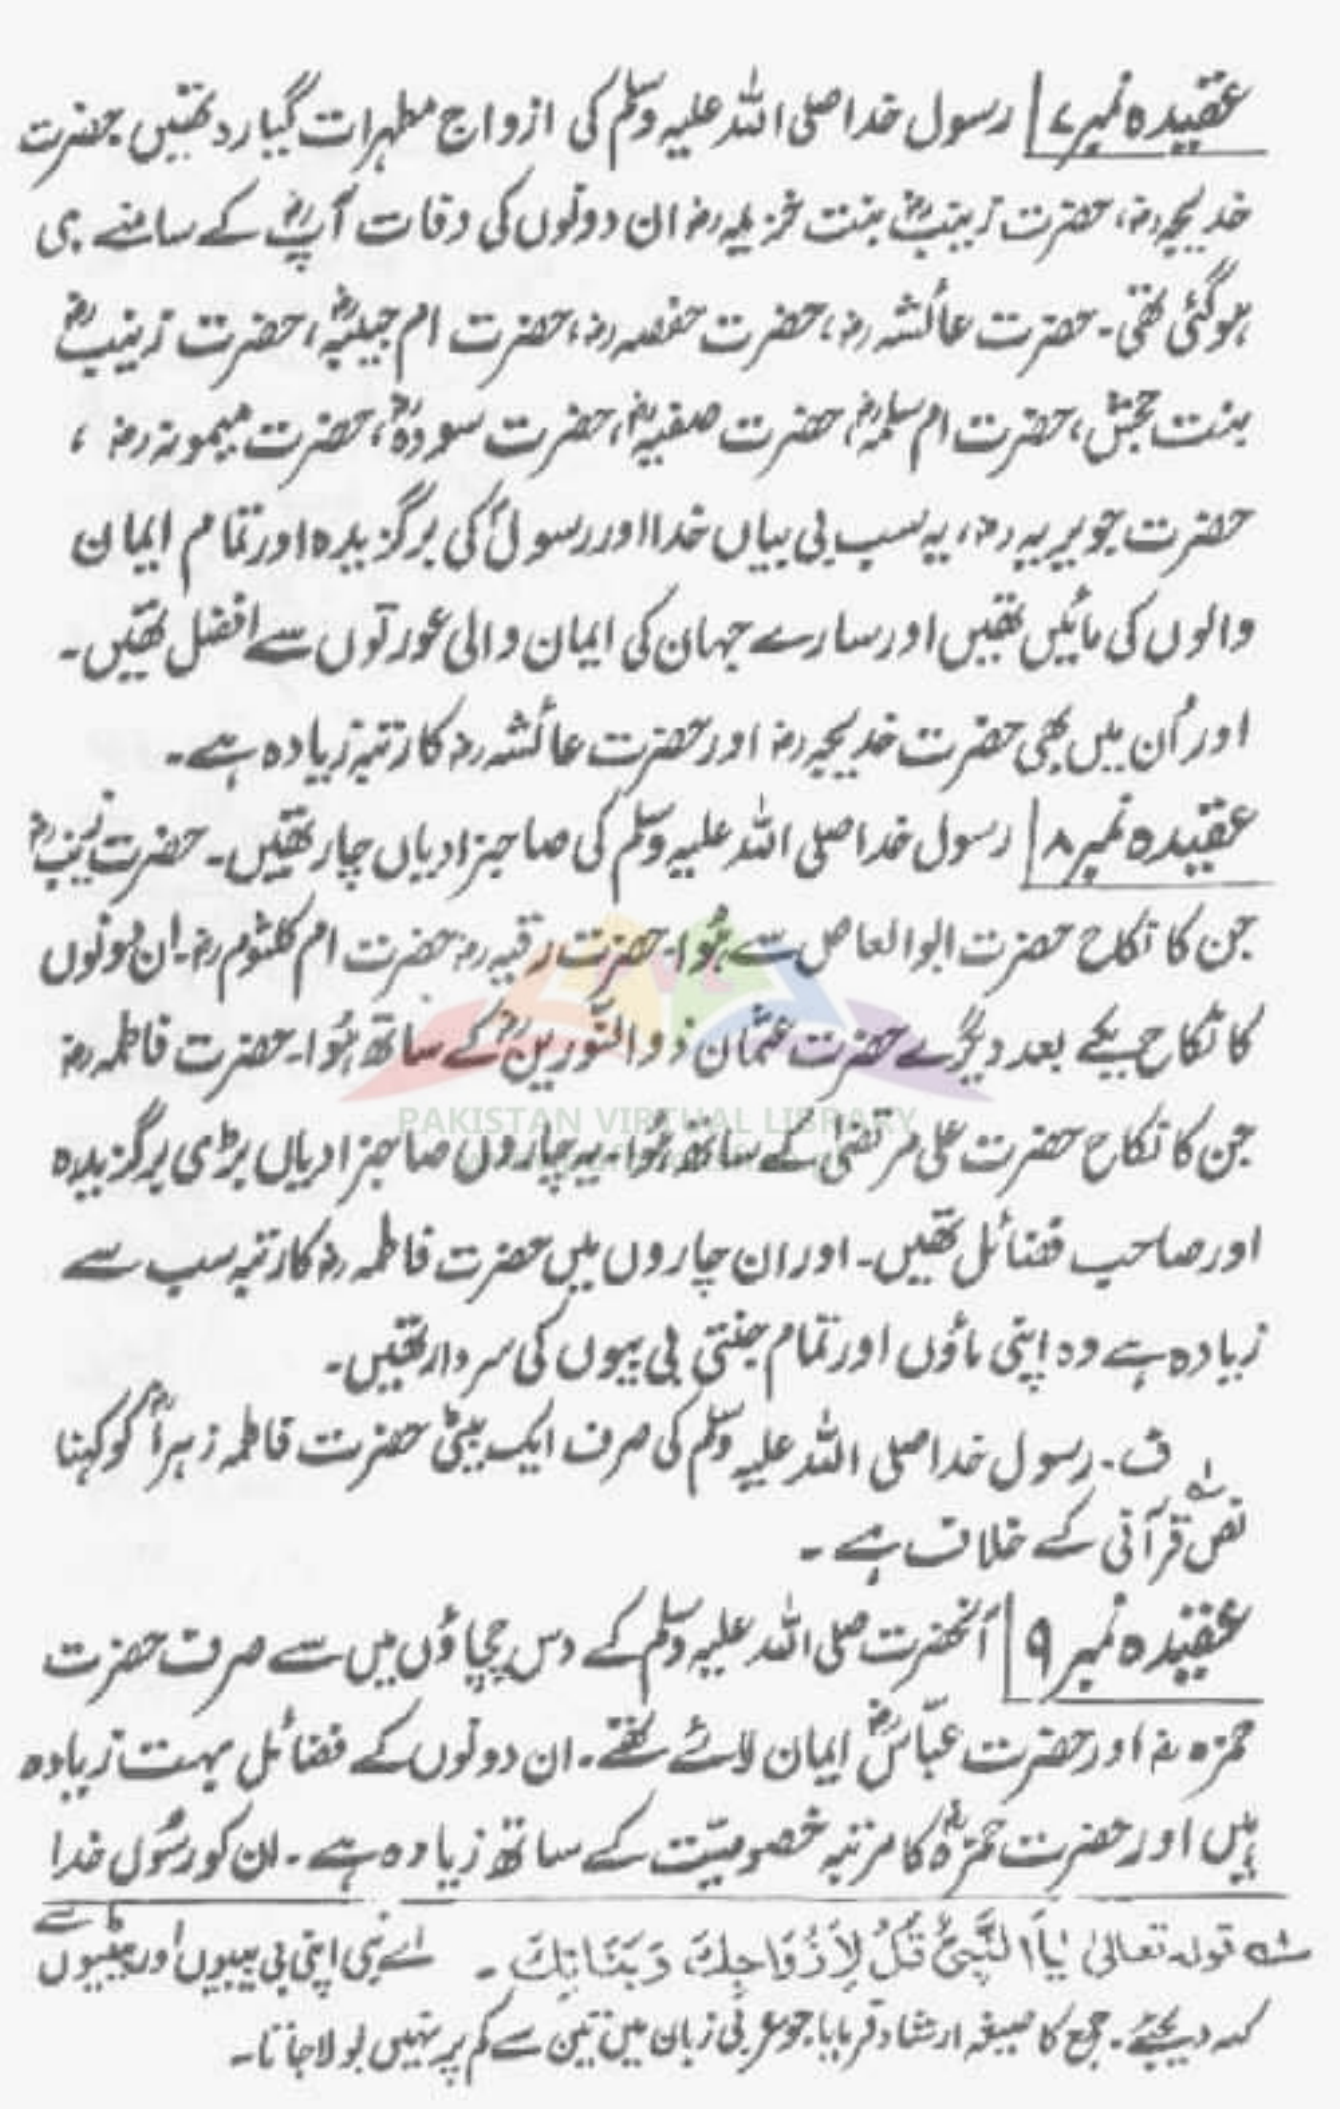 عقیدہ نمبر ۷ رسول خدا صلی اللہ علیہ وسلم کی ازواج مطہرات گیارہ تھیں حضرت
خدیجہؓ، حضرت زینبؓ بنت خزیمہؓ ان دونوں کی وفات آپؐ کے سامنے ہی
ہوگئی تھی۔ حضرت عائشہؓ، حضرت حفصہؓ، حضرت ام حبیبہؓ، حضرت زینبؓ
بنت جحشؓ، حضرت ام سلمہؓ، حضرت صفیہؓ، حضرت سودہؓ، حضرت میمونہؓ،
حضرت جویریہؓ، یہ سب بی بیاں خدا اور رسولؐ کی برگزیدہ اور تمام ایمان
والوں کی مائیں تھیں اور سارے جہان کی ایمان والی عورتوں سے افضل تھیں۔
اور اُن میں بھی حضرت خدیجہؓ اور حضرت عائشہؓ کا رتبہ زیادہ ہے۔
عقیدہ نمبر ۸ رسول خدا صلی اللہ علیہ وسلم کی صاحبزادیاں چار تھیں۔ حضرت زینبؓ
جن کا نکاح حضرت ابوالعاص سے ہُوا۔ حضرت رقیہؓ حضرت ام کلثومؓ۔ ان دونوں
کا نکاح یکے بعد دیگرے حضرت عثمان ذوالنورینؓ کے ساتھ ہُوا۔ حضرت فاطمہؓ
PAKISTAN VIRTUAL LIBRARY
جن کا نکاح حضرت علی مرتضیٰؓ کے ساتھ ہُوا۔ یہ چاروں صاحبزادیاں بڑی برگزیدہ
اور صاحب فضائل تھیں۔ اور ان چاروں میں حضرت فاطمہؓ کا رتبہ سب سے
زیادہ ہے وہ اپنی ماؤں اور تمام جنتی بی بیوں کی سردار تھیں۔
ف۔ رسول خدا صلی اللہ علیہ وسلم کی صرف ایک بیٹی حضرت فاطمہ زہراؓ کو کہنا
نص قرآنی ؂۱ کے خلاف ہے۔
عقیدہ نمبر ۹ آنحضرت صلی اللہ علیہ وسلم کے دس چچاؤں میں سے صرف حضرت
حمزہؓ اور حضرت عباسؓ ایمان لائے تھے۔ ان دونوں کے فضائل بہت زیادہ
ہیں اور حضرت حمزہؓ کا مرتبہ خصوصیّت کے ساتھ زیادہ ہے۔ ان کو رسُول خدا
؂۱ قولہ تعالیٰ یٰاَا النَّبِیُّ قُلْ لِاَزْوَاجِكَ وَبَنَاتِكَ۔ اے نبی اپنی بی بیبیوں اور بیٹیوں سے
کہہ دیجئے۔ جمع کا صیغہ ارشاد فرمایا جو عربی زبان میں تین سے کم پر نہیں بولا جاتا۔